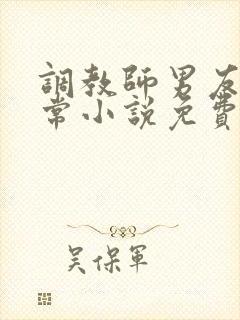 調教師男友
常小說免費
吴保軍